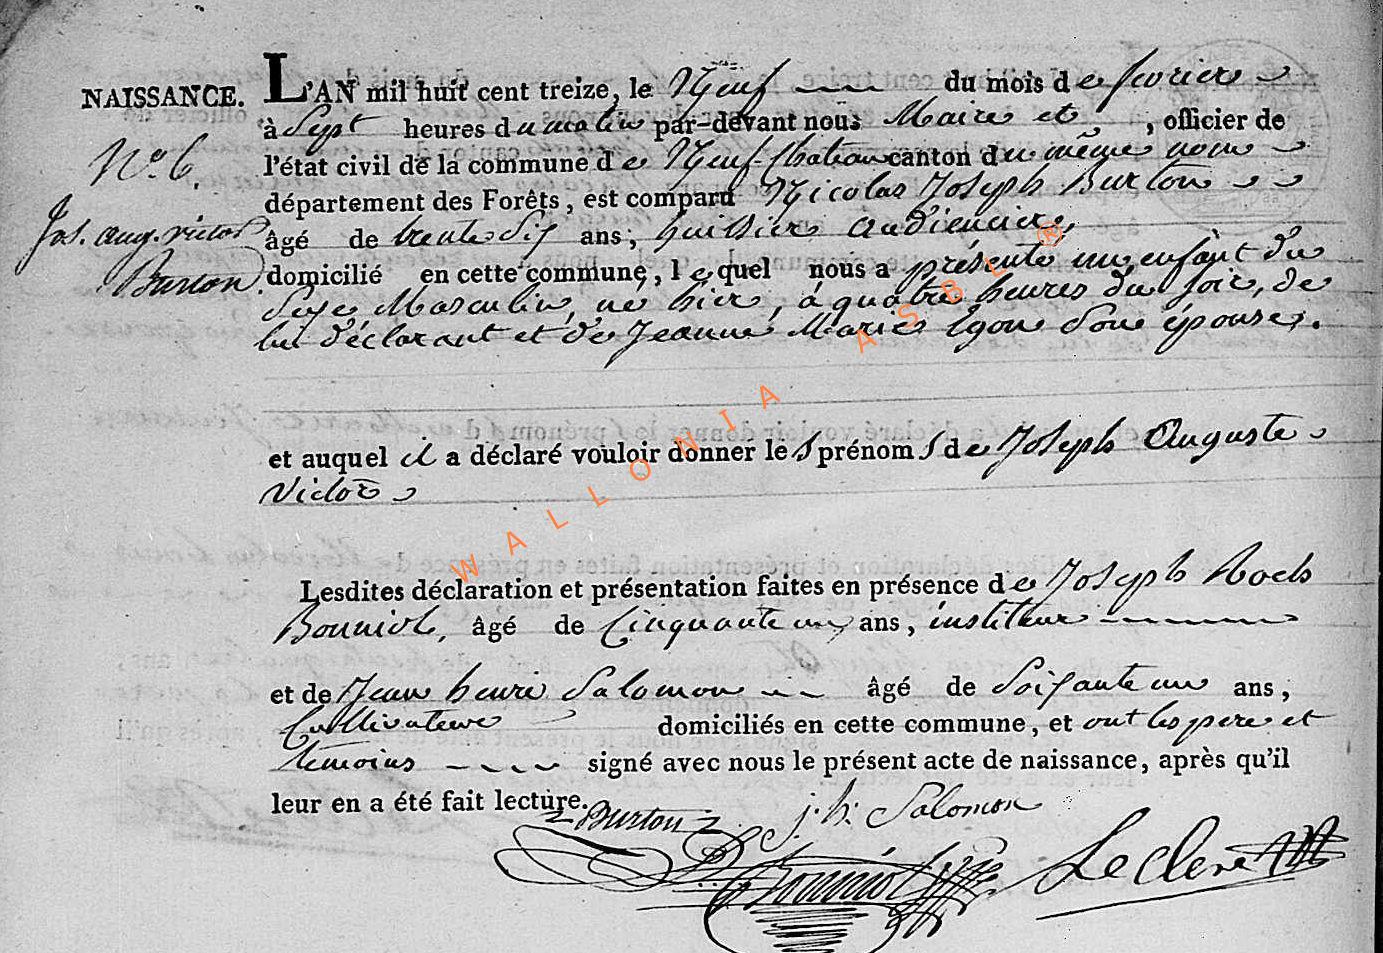 NAISSANCE. L'AN mil huit cent treize, le Neuf du mois de fevrier
à Sept heures du matin par-devant nous Maire et, officier de
N.o 6. l'état civil de la commune de Neuf-chateau canton du même nom
département des Forêts, est comparu Nicolas Joseph Burton
Jos. aug. victor âgé de trente Six ans, huissier audiencier,
Burton. domicilié en cette commune, lequel nous a présenté un enfant du
Sexe Masculin, né hier, à quatre heures du soir, de
lui déclarant et de Jeanne Marie lyon Son épouse.
et auquel il a déclaré vouloir donner les prénoms de Joseph Auguste
Victor
Lesdites déclaration et présentation faites en présence de Joseph Roch
Bonniol, âgé de Cinquante un ans, instituteur
et de Jean henri Salomon âgé de Soixante un ans,
Cultivateur domiciliés en cette commune, et ont les pere et
témoins signé avec nous le présent acte de naissance, après qu'il
leur en a été fait lecture.
Burton j. h. Salomon
Bonniol Leclere
WALLONIA ASBL ®